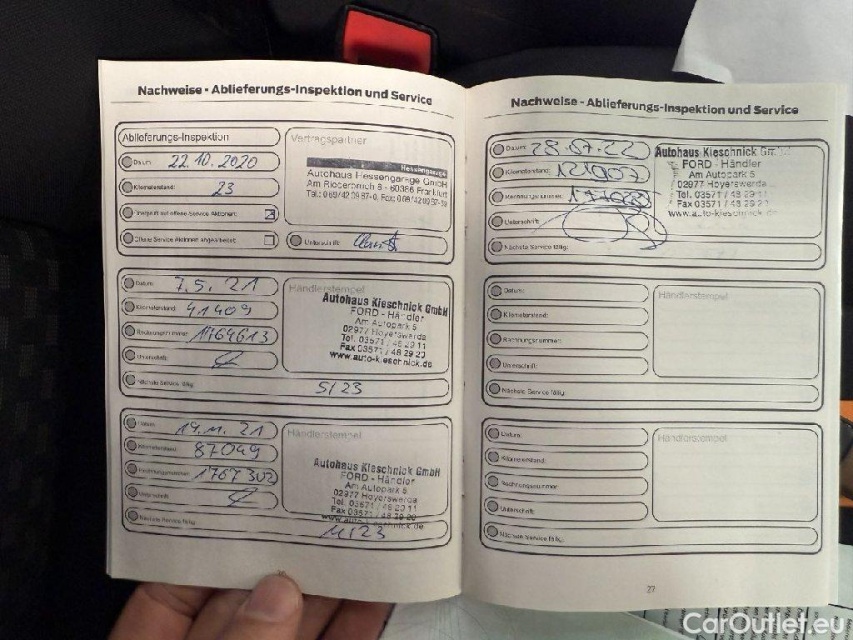 Nachweise - Ablieferungs-Inspektion und Service
Ablieferungs-Inspektion
Datum: 22.10.2020
Kilometerstand: 23
Überprüft auf offene Service Aktionen:
Offene Service Aktionen angearbeitet:
Vertragspartner
Hessengarage
Autohaus Hessengarage GmbH
Am Riederbruch 8 - 60386 Frankfurt
Unterschrift:
Datum: 7.5.21
Kilometerstand: 41409
Rechnungsnummer: 1764613
Unterschrift:
Nächste Service fällig: 5/23
Händlerstempel
Autohaus Kieschnick GmbH
FORD - Händler
Am Autopark 5
02977 Hoyerswerda
Tel. 03571 / 48 20 11
Fax 03571 / 48 29 20
www.auto-kieschnick.de
Datum: 19.11.21
Kilometerstand: 87049
Rechnungsnummer: 1767302
Unterschrift:
Nächste Service fällig: 11/23
Händlerstempel
Autohaus Kieschnick GmbH
FORD - Händler
Am Autopark 5
02977 Hoyerswerda
Tel. 03571 / 48 20 11
Fax 03571 / 48 29 20
www.auto-kieschnick.de
Nachweise - Ablieferungs-Inspektion und Service
Datum: 28.07.22
Kilometerstand: 121907
Rechnungsnummer:
Unterschrift:
Nächste Service fällig:
Autohaus Kieschnick GmbH
FORD - Händler
Am Autopark 5
02977 Hoyerswerda
Tel. 03571 / 48 29 11
Fax 03571 / 48 29 20
www.auto-kieschnick.de
Datum:
Kilometerstand:
Rechnungsnummer:
Unterschrift:
Nächste Service fällig:
Händlerstempel
Datum:
Kilometerstand:
Rechnungsnummer:
Unterschrift:
Nächste Service fällig:
Händlerstempel
27
CarOutlet.eu